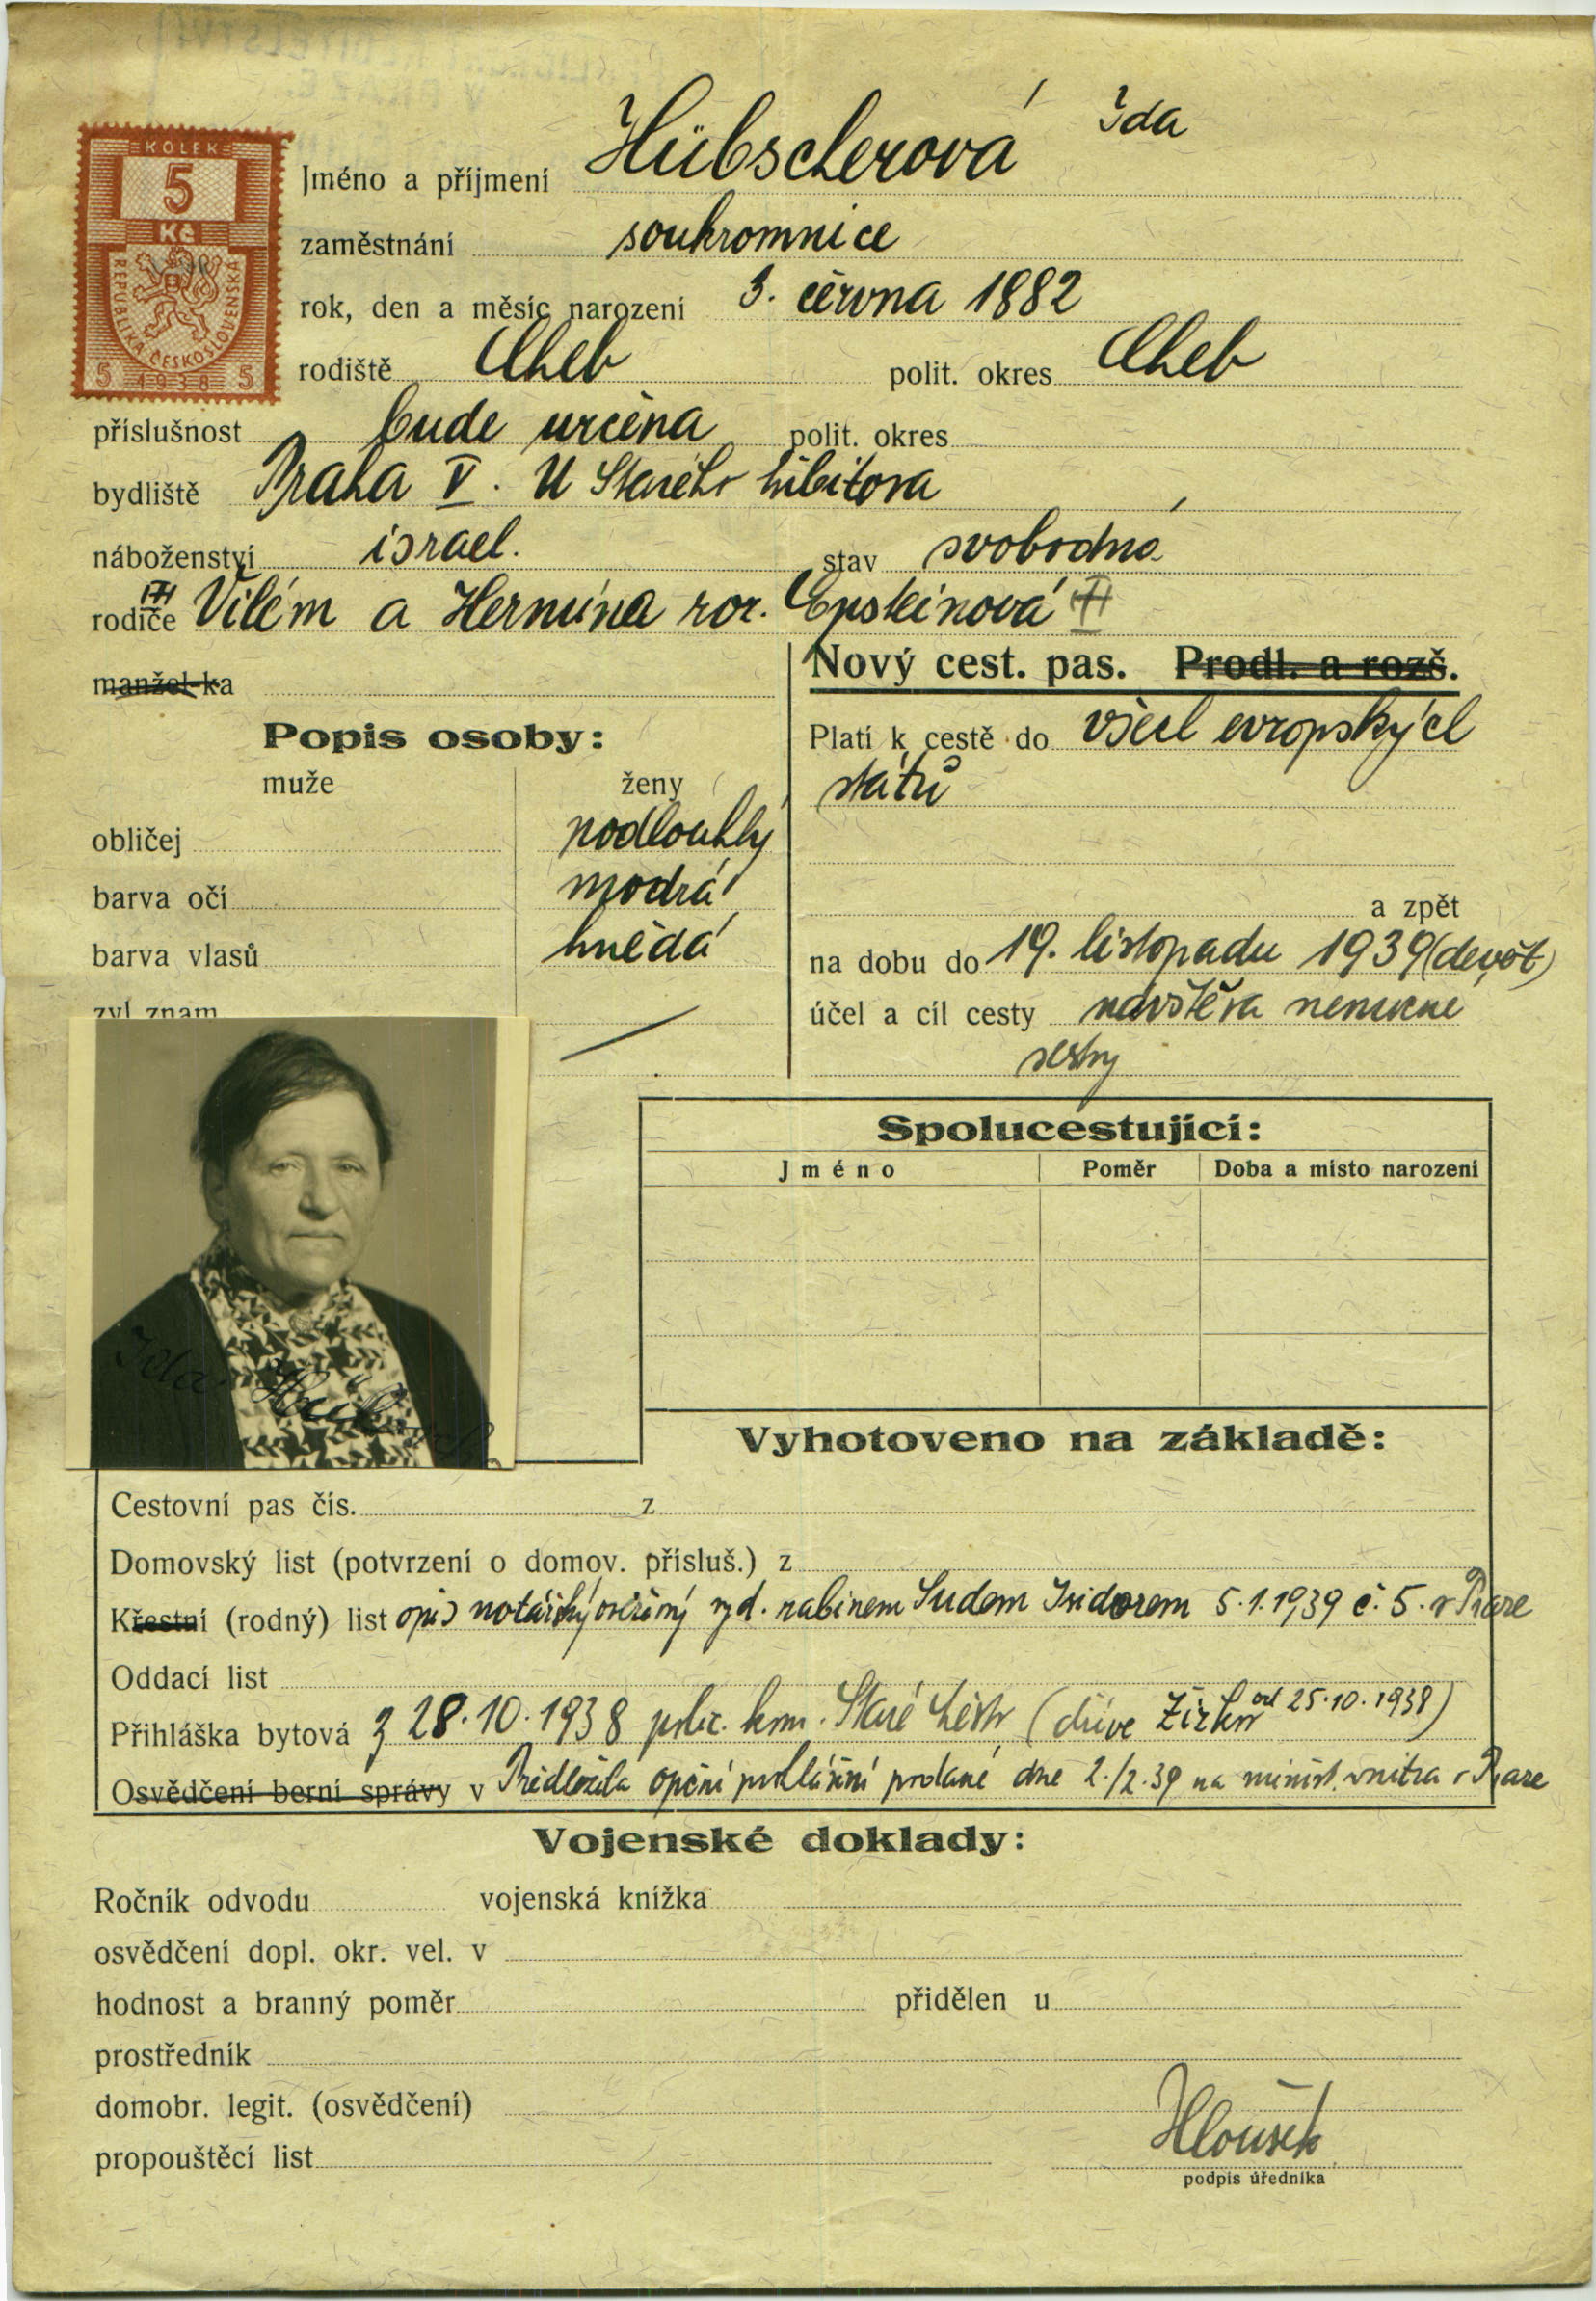 KOLEK
5
Kč
REPUBLIKA ČESKOSLOVENSKÁ
5 1938 5
Jméno a příjmení Hübscherová Ida
zaměstnání soukromnice
rok, den a měsíc narození 3. června 1882
rodiště Cheb polit. okres Cheb
příslušnost bude určena polit. okres
bydliště Praha V. U Starého hřbitova
náboženství israel. stav svobodná
rodiče Vilém a Hermína roz. Epsteinová
manžel-ka
Nový cest. pas. Prodl. a rozš.
Popis osoby:
muže ženy
obličej podlouhlý
barva očí modrá
barva vlasů hnědá
zvl. znam.
Platí k cestě do všech evropských
států
a zpět
na dobu do 19. listopadu 1939 (devět)
účel a cíl cesty návštěva nemocné
sestry
Spolucestující:
Jméno Poměr Doba a místo narození
Ida Hübsch
Vyhotoveno na základě:
Cestovní pas čís. z
Domovský list (potvrzení o domov. přísluš.) z
Křestní (rodný) list opis notářský ověřený vyd. rabínem Isidorem 5.1.1939 č. 5. v Praze
Oddací list
Přihláška bytová z 28.10.1938 polic. kom. Staré Město (dříve Žižkov od 25.10.1938)
Osvědčení berní správy v Předložila opční prohlášení podané dne 2./2.39 na minist. vnitra v Praze
Vojenské doklady:
Ročník odvodu vojenská knížka
osvědčení dopl. okr. vel. v
hodnost a branný poměr přidělen u
prostředník
domobr. legit. (osvědčení)
propouštěcí list
Hloušek
podpis úředníka